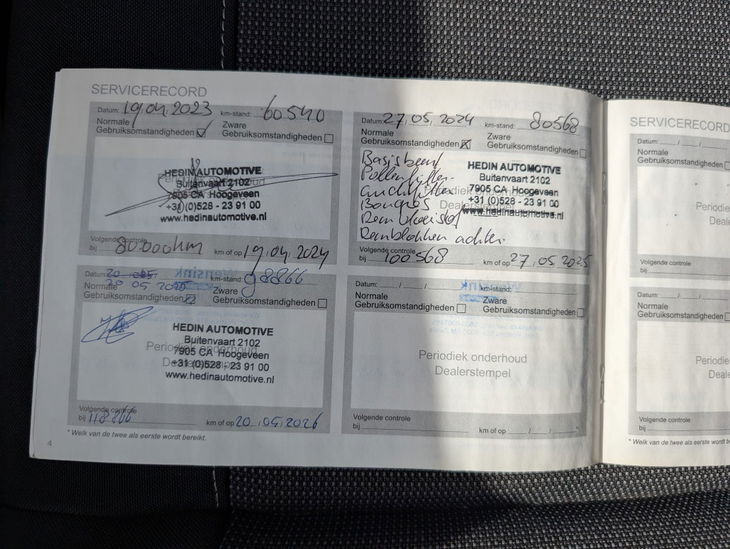 SERVICERECORD
Datum: 19.04.2023 km-stand: 60540
Normale Gebruiksomstandigheden Zware Gebruiksomstandigheden
HEDIN AUTOMOTIVE
Buitenvaart 2102
7905 CA Hoogeveen
+31 (0)528 - 23 91 00
www.hedinautomotive.nl
Volgende controle
bij 80.000km km of op 19.04.2024
Datum: 27.05.2024 km-stand: 80568
Normale Gebruiksomstandigheden Zware Gebruiksomstandigheden
Basisbeurt
Pollenfilter
Luchtfilter
Bougies
Remvloeistof
Remblokken achter
HEDIN AUTOMOTIVE
Buitenvaart 2102
7905 CA Hoogeveen
+31 (0)528 - 23 91 00
www.hedinautomotive.nl
Periodiek onderhoud
Dealerstempel
Volgende controle
bij 100568 km of op 27.05.2025
Datum: 20 05 2025 km-stand: 98866
Normale Gebruiksomstandigheden Zware Gebruiksomstandigheden
Periodiek onderhoud
Dealerstempel
HEDIN AUTOMOTIVE
Buitenvaart 2102
7905 CA Hoogeveen
+31 (0)528 - 23 91 00
www.hedinautomotive.nl
Volgende controle
bij 118866 km of op 20.05.2026
Datum: / / km-stand:
Normale Gebruiksomstandigheden Zware Gebruiksomstandigheden
Periodiek onderhoud
Dealerstempel
Volgende controle
bij km of op / /
4 * Welk van de twee als eerste wordt bereikt.
SERVICERECORD
Datum: / /
Normale
Gebruiksomstandigheden
Periodie
Deale
Volgende controle
bij
Datum: / /
Normale
Gebruiksomstandigheden
Periodie
Deale
Volgende controle
bij
* Welk van de twee als eerste wordt